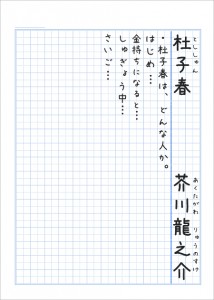 杜子春　芥川龍之介
とししゅん　あくたがわ　りゅうのすけ
・杜子春は、どんな人か。
はじめ…
金持ちになると…
しゅぎょう中…
さいご…